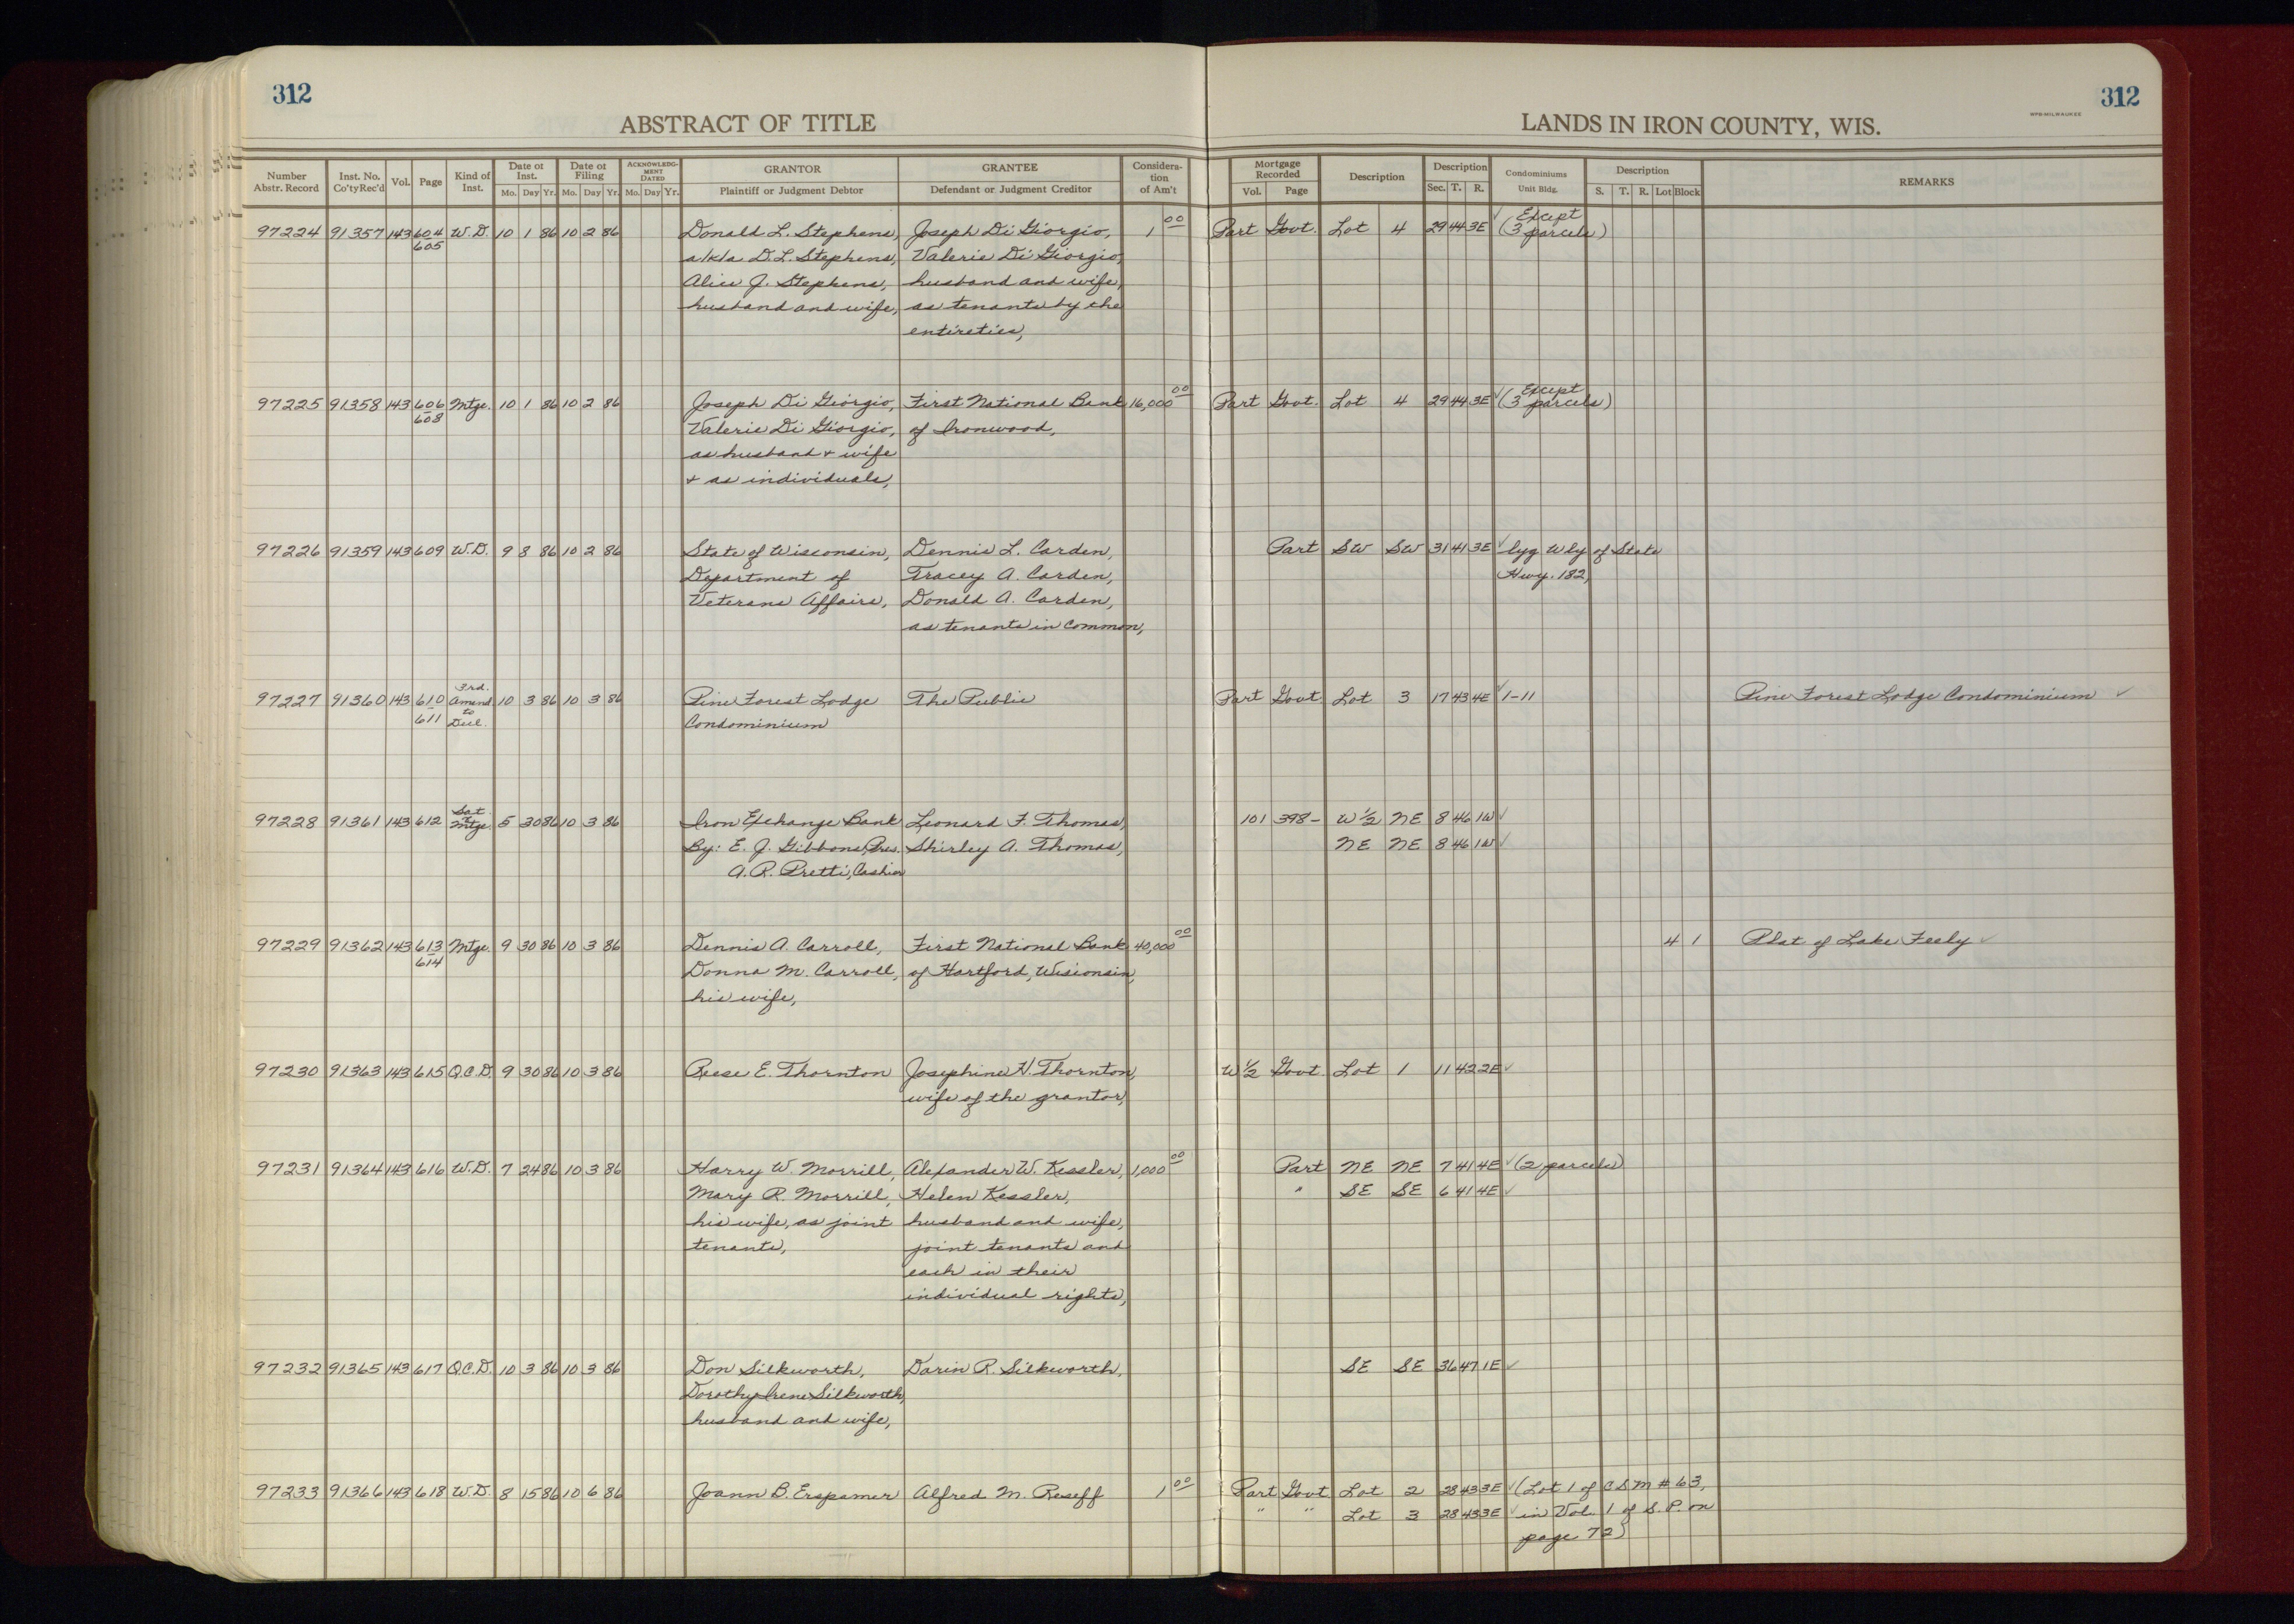 312
312
ABSTRACT OF TITLE
LANDS IN IRON COUNTY, WIS.
WPB-MILWAUKEE
Number Abstr. Record | Inst. No. Co'ty Rec'd | Vol. | Page | Kind of Inst. | Date of Inst. Mo. Day Yr. | Date of Filing Mo. Day Yr. | ACKNOWLEDGMENT DATED Mo. Day Yr. | GRANTOR Plaintiff or Judgment Debtor | GRANTEE Defendant or Judgment Creditor | Consideration of Am't | Mortgage Recorded Vol. Page | Description | Description Sec. T. R. | Condominiums Unit Bldg. | Description S. T. R. Lot Block | REMARKS
97224 91357 143 604 W.D. 10 1 86 10 2 86 Donald L. Stephens, Joseph Di Giorgio, 1 00 Part Govt. Lot 4 29 44 3E ✓ (Except
605 a/k/a D.L. Stephens, Valerie Di Giorgio, 3 parcels)
Alice J. Stephens, husband and wife,
husband and wife, as tenants by the
entireties,
97225 91358 143 606 Mtge. 10 1 86 10 2 86 Joseph Di Giorgio, First National Bank 16,000 00 Part Govt. Lot 4 29 44 3E ✓ (Except
608 Valerie Di Giorgio, of Ironwood, 3 parcels)
as husband + wife
+ as individuals,
97226 91359 143 609 W.D. 9 8 86 10 2 86 State of Wisconsin, Dennis L. Carden, Part SW SW 31 41 3E ✓ lyg Wly of State
Department of Tracey A. Carden, Hwy. 182,
Veterans Affairs, Donald A. Carden,
as tenants in common,
97227 91360 143 610 3rd. Amend 10 3 86 10 3 86 Pine Forest Lodge The Public Part Govt Lot 3 17 43 4E ✓ 1-11 Pine Forest Lodge Condominium ✓
611 to Decl. Condominium
97228 91361 143 612 Sat Mtge. 5 30 86 10 3 86 Iron Exchange Bank Leonard F. Thomas, 101 398- W½ NE 8 46 1W ✓
By: E. J. Gibbons, Pres. Shirley A. Thomas, NE NE 8 46 1W ✓
A. R. Pretti, Cashier
97229 91362 143 613 Mtge. 9 30 86 10 3 86 Dennis A. Carroll, First National Bank 40,000 00 4 1 Plat of Lake Feely ✓
614 Donna M. Carroll, of Hartford, Wisconsin,
his wife,
97230 91363 143 615 Q.C.D. 9 30 86 10 3 86 Reese E. Thornton Josephine H. Thornton, W½ Govt Lot 1 11 42 2E ✓
wife of the grantor,
97231 91364 143 616 W.D. 7 24 86 10 3 86 Harry W. Morrill, Alexander W. Kessler, 1,000 00 Part NE NE 7 41 4E ✓ (2 parcels)
Mary R. Morrill, Helen Kessler, " SE SE 6 41 4E ✓
his wife, as joint husband and wife,
tenants, joint tenants and
each in their
individual rights,
97232 91365 143 617 Q.C.D. 10 3 86 10 3 86 Don Silkworth, Darin R. Silkworth, SE SE 36 47 1E ✓
Dorothy Irene Silkworth,
husband and wife,
97233 91366 143 618 W.D. 8 15 86 10 6 86 Joann B. Erspamer Alfred M. Reseff 1 00 Part Govt Lot 2 28 43 3E ✓ (Lot 1 of CSM # 63,
" " Lot 3 28 43 3E ✓ in Vol. 1 of S. P. on
page 72)